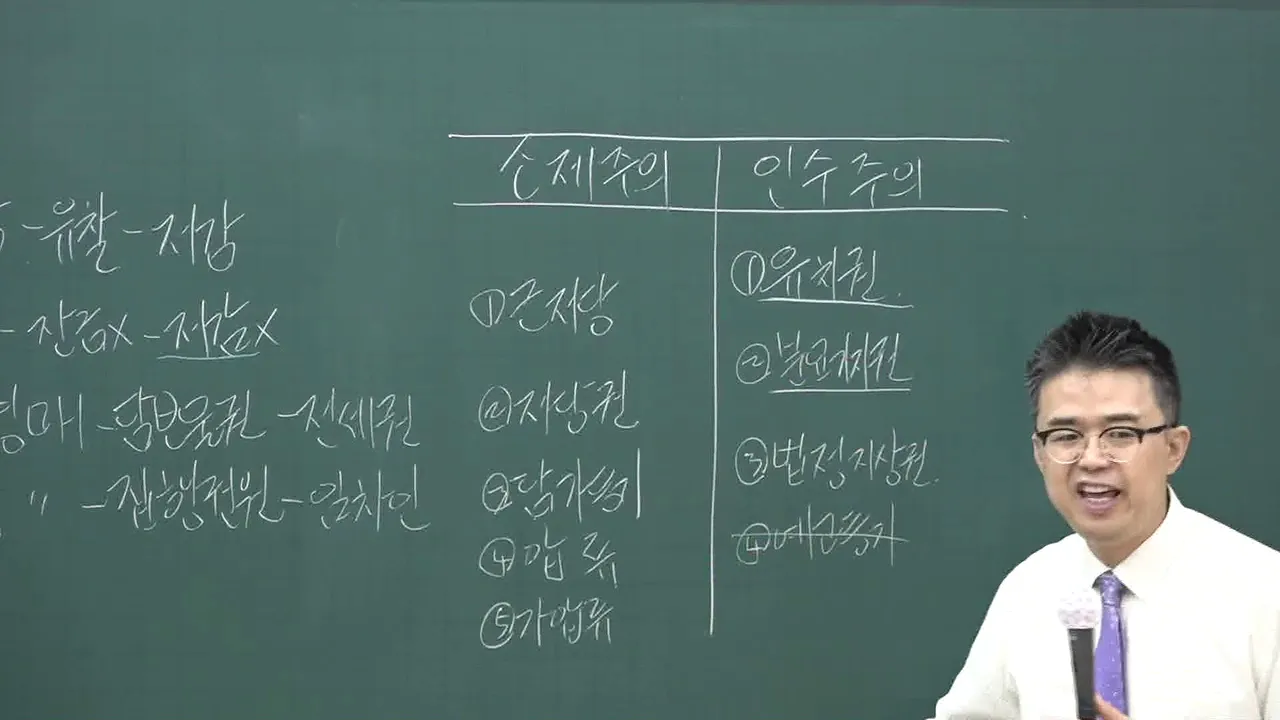 - 유찰 - 저감
- 잔금x - 저감x
경매 - 담보물권 - 전세권
" - 집행권원 - 임차인
소제주의
① 근저당
② 저당권
③ 담가등기
④ 압류
⑤ 가압류
인수주의
① 유치권.
② 분묘기지권
③ 법정지상권.
④ 예고등기